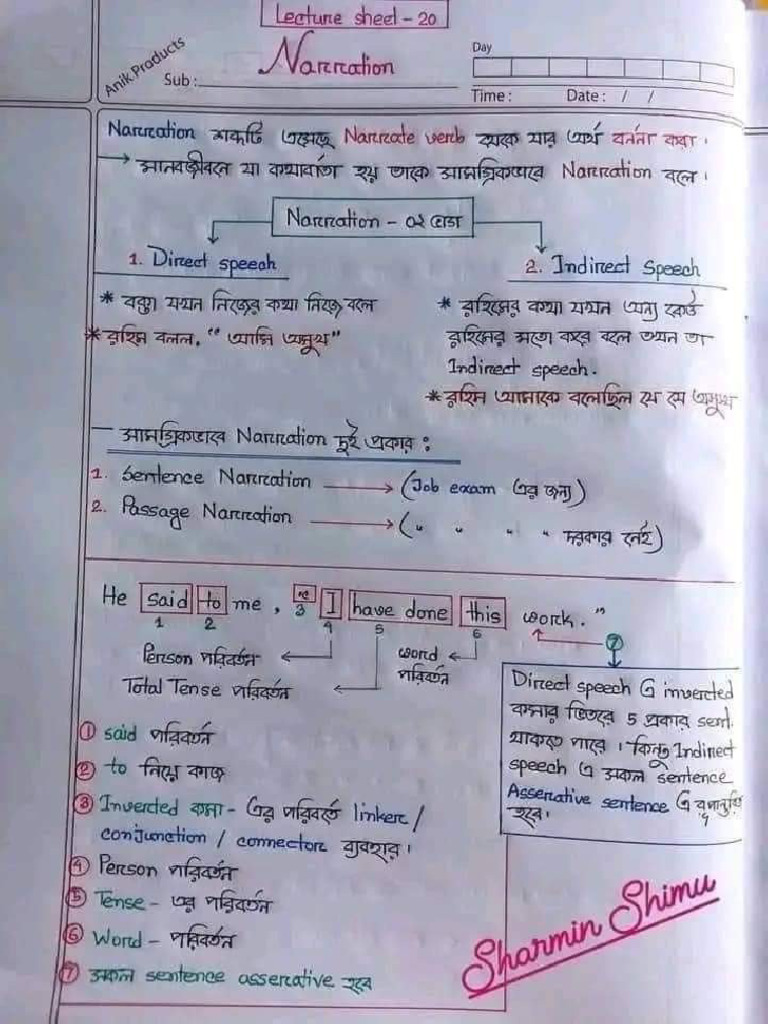 Lecture sheet - 20
Anik Products
Narration
Day
Sub :
Time : Date : / /
Narration শব্দটি এসেছে Narrate verb থেকে যার অর্থ বর্ননা করা।
→ মানবজীবনে যা কথাবার্তা হয় তাকে সামগ্রিকভাবে Narration বলে।
Narration - ০২ প্রকার
1. Direct speech
2. Indirect Speech
* বক্তা যখন নিজের কথা নিজে বলে
* রহিম বলল, "আমি অসুস্থ"
* রহিমের কথা যখন অন্য কেউ
রহিমের মতো করে বলে তখন তা
Indirect speech.
* রহিম আমাকে বলেছিল যে সে অসুস্থ
— সামগ্রিকভাবে Narration দুই প্রকার :
1. Sentence Narration → (Job exam এর জন্য)
2. Passage Narration → (" " " " দরকার নেই)
He said to me, " I have done this work."
1 2 3 4 5 6 7
Person পরিবর্তন
word পরিবর্তন
Total Tense পরিবর্তন
Direct speech এ inverted
কমার ভিতরে 5 প্রকার sent.
থাকতে পারে। কিন্তু Indirect
speech এ সকল sentence
Assertative sentence এ
হবে।
① said পরিবর্তন
② to নিয়ে কাজ
③ Inverted কমা - এর পরিবর্তে linker /
conjunction / connector ব্যবহার।
④ Person পরিবর্তন
⑤ Tense - এর পরিবর্তন
⑥ Word - পরিবর্তন
⑦ সকল sentence assertative হবে
Sharmin Shimu